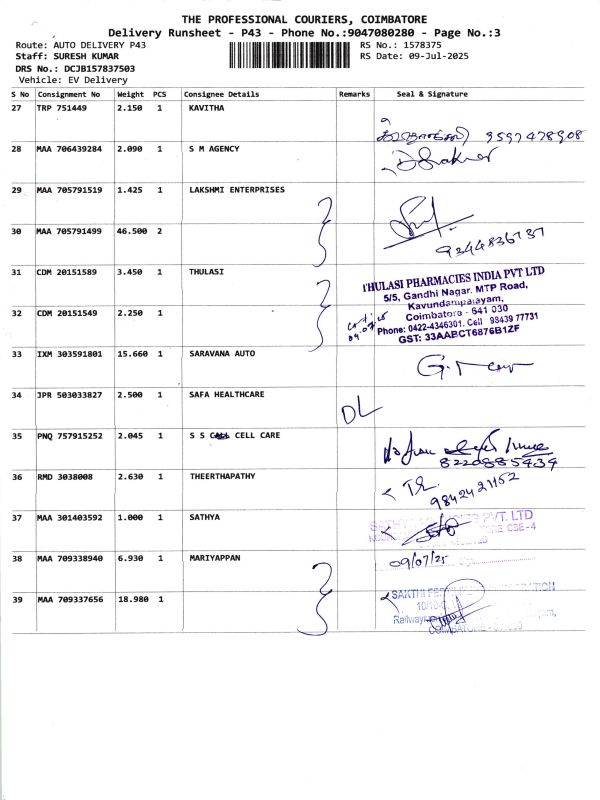 THE PROFESSIONAL COURIERS, COIMBATORE
Delivery Runsheet - P43 - Phone No.:9047080280 - Page No.:3
Route: AUTO DELIVERY P43
RS No.: 1578375
Staff: SURESH KUMAR
RS Date: 09-Jul-2025
DRS No.: DCJB157837503
Vehicle: EV Delivery
S No Consignment No Weight PCS Consignee Details Remarks Seal & Signature
27 TRP 751449 2.150 1 KAVITHA
9597478908
28 MAA 706439284 2.090 1 S M AGENCY
29 MAA 705791519 1.425 1 LAKSHMI ENTERPRISES
30 MAA 705791499 46.500 2
9244836737
31 CDM 20151589 3.450 1 THULASI
THULASI PHARMACIES INDIA PVT LTD
5/5, Gandhi Nagar. MTP Road,
Kavundampalayam,
32 CDM 20151549 2.250 1
Coimbatore - 641 030
Phone: 0422-4346301, Cell 98439 77731
GST: 33AABCT6876B1ZF
33 IXM 303591801 15.660 1 SARAVANA AUTO
34 JPR 503033827 2.500 1 SAFA HEALTHCARE
DL
35 PNQ 757915252 2.045 1 S S CELL CARE
8220885439
36 RMD 3038008 2.630 1 THEERTHAPATHY
9842421152
37 MAA 301403592 1.000 1 SATHYA
PVT. LTD
CBE-4
38 MAA 709338940 6.930 1 MARIYAPPAN
09/07/25
39 MAA 709337656 18.980 1
SAKTHI
Railway
COIMBATORE